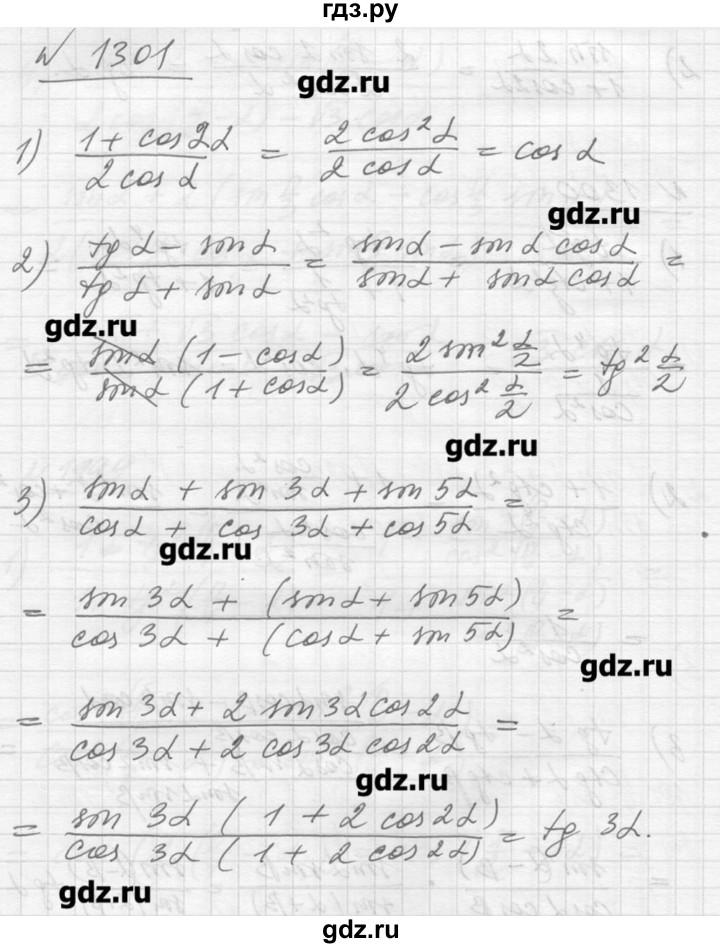 гдз.ру
N 1301
gdz.ru
1) (1 + cos 2α)/(2 cos α) = (2 cos² α)/(2 cos α) = cos α
gdz.ru
2) (tg α - sin α)/(tg α + sin α) = (sin α - sin α cos α)/(sin α + sin α cos α) =
gdz.ru
= (sin α (1 - cos α))/(sin α (1 + cos α)) = (2 sin² α/2)/(2 cos² α/2) = tg² α/2
gdz.ru
3) (sin α + sin 3α + sin 5α)/(cos α + cos 3α + cos 5α) =
gdz.ru
= (sin 3α + (sin α + sin 5α))/(cos 3α + (cos α + sin 5α)) =
gdz.ru
= (sin 3α + 2 sin 3α cos 2α)/(cos 3α + 2 cos 3α cos 2α) =
gdz.ru
= (sin 3α (1 + 2 cos 2α))/(cos 3α (1 + 2 cos 2α)) = tg 3α.
gdz.ru
gdz.ru